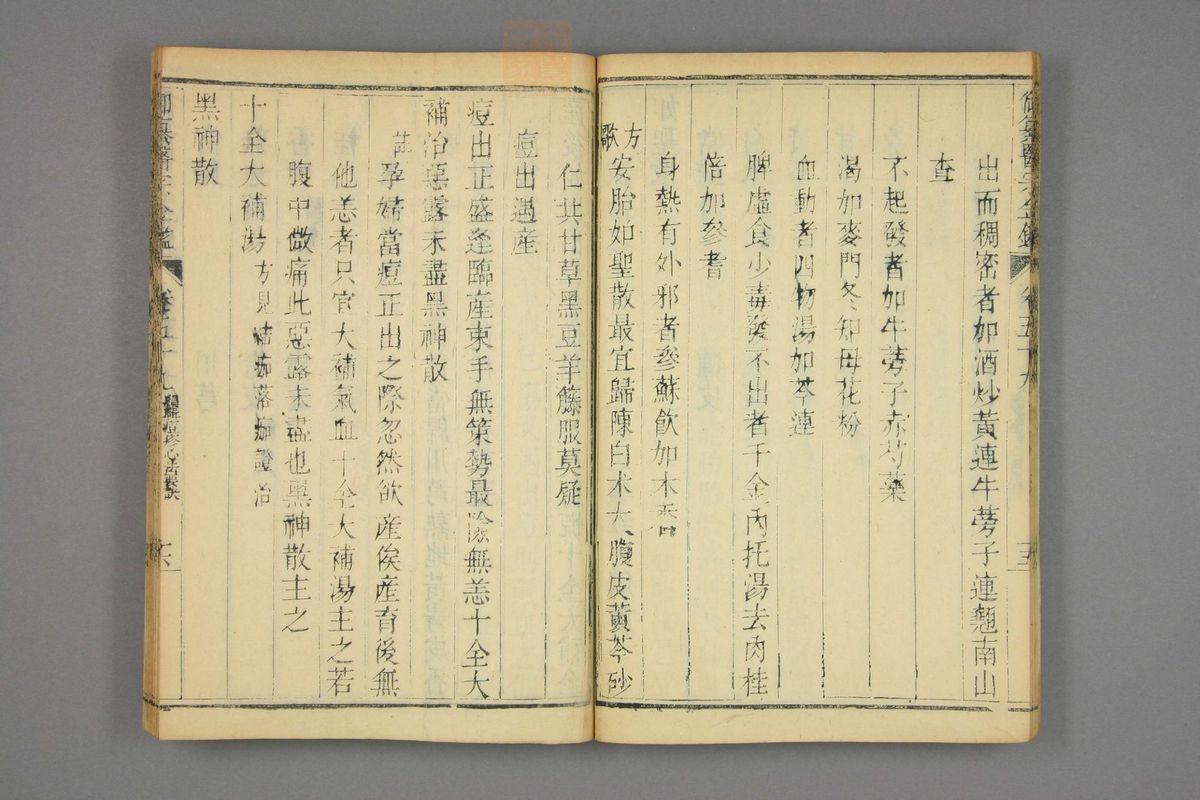 御纂醫宗金鑑 卷五十九 五
出而稠密者加酒炒黃連牛蒡子連翹南山
查
不起發者加牛蒡子赤芍藥
渴加麥門冬知母花粉
血動者四物湯加芩連
脾虛食少毒發不出者千金內托湯去肉桂
倍加參耆
身熱有外邪者參蘇飲加木香
方歌 安胎如聖散最宜歸陳白朮大腹皮黃芩砂
仁共甘草黑豆羊籐服莫疑
痘出遇產
痘出正盛逢臨產束手無策勢最險無恙十全大
補治惡露未盡黑神散
註 孕婦當痘正出之際忽然欲產俟產育後無
他恙者只宜大補氣血十全大補湯主之若
腹中微痛此惡露未盡也黑神散主之
十全大補湯 方見 痂落 證治
黑神散
御纂醫宗金鑑 卷五十九 痘疹心法要訣 六